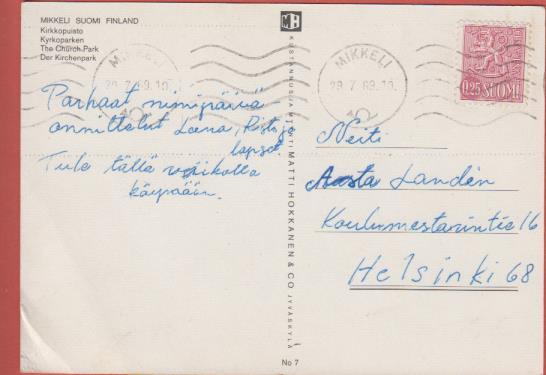 MIKKELI SUOMI FINLAND
Kirkkopuisto
Kyrkoparken
The Church Park
Der Kirchenpark
MB
KUSTANNUS JA MYYNTI MATTI HOKKANEN & CO JYVÄSKYLÄ
MIKKELI
29.7.69.10.
MIKKELI
29.7.69.10.
0.25 SUOMI
Parhaat nimipäivä-
onnittelut Leena, Risto ja
lapset.
Tule tällä viikolla
käymään.
Neiti
Aasta Landén
Koulumestarintie 16
Helsinki 68
No 7